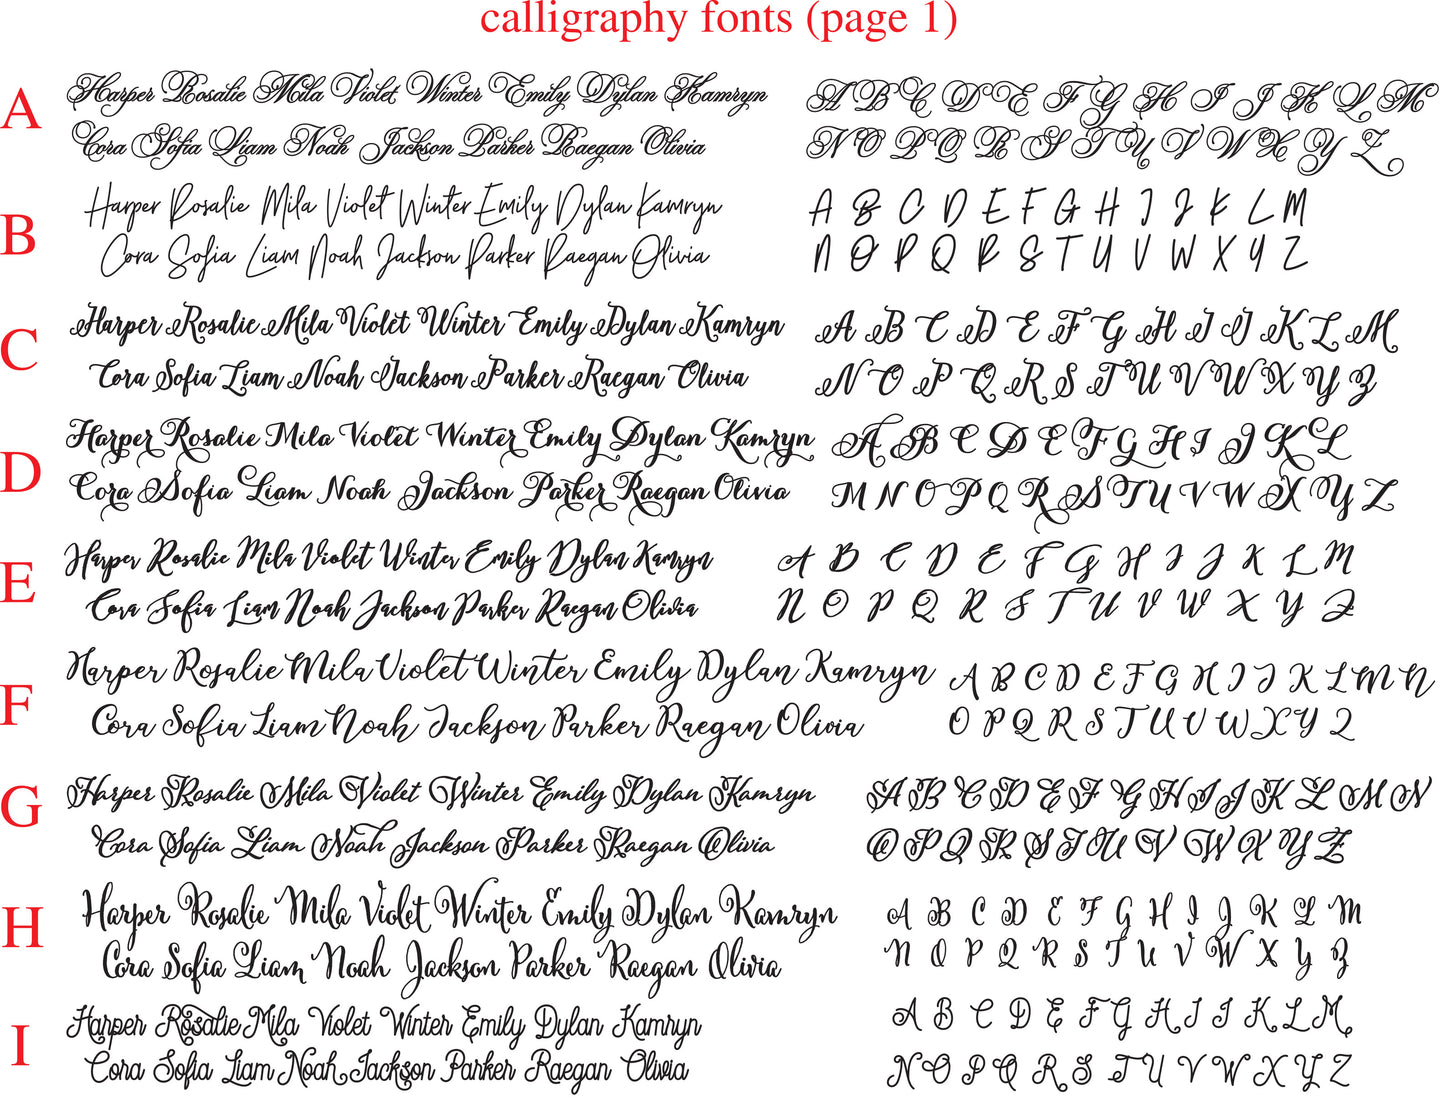 calligraphy fonts (page 1)
A
Harper Rosalie Mila Violet Winter Emily Dylan Kamryn
Cora Sofia Liam Noah Jackson Parker Raegan Olivia
A B C D E F G H I J K L M
N O P Q R S T U V W X Y Z
B
Harper Rosalie Mila Violet Winter Emily Dylan Kamryn
Cora Sofia Liam Noah Jackson Parker Raegan Olivia
A B C D E F G H I J K L M
N O P Q R S T U V W X Y Z
C
Harper Rosalie Mila Violet Winter Emily Dylan Kamryn
Cora Sofia Liam Noah Jackson Parker Raegan Olivia
A B C D E F G H I J K L M
N O P Q R S T U V W X Y Z
D
Harper Rosalie Mila Violet Winter Emily Dylan Kamryn
Cora Sofia Liam Noah Jackson Parker Raegan Olivia
A B C D E F G H I J K L
M N O P Q R S T U V W X Y Z
E
Harper Rosalie Mila Violet Winter Emily Dylan Kamryn
Cora Sofia Liam Noah Jackson Parker Raegan Olivia
A B C D E F G H I J K L M
N O P Q R S T U V W X Y Z
F
Harper Rosalie Mila Violet Winter Emily Dylan Kamryn
Cora Sofia Liam Noah Jackson Parker Raegan Olivia
A B C D E F G H I J K L M N
O P Q R S T U V W X Y Z
G
Harper Rosalie Mila Violet Winter Emily Dylan Kamryn
Cora Sofia Liam Noah Jackson Parker Raegan Olivia
A B C D E F G H I J K L M N
O P Q R S T U V W X Y Z
H
Harper Rosalie Mila Violet Winter Emily Dylan Kamryn
Cora Sofia Liam Noah Jackson Parker Raegan Olivia
A B C D E F G H I J K L M
N O P Q R S T U V W X Y Z
I
Harper Rosalie Mila Violet Winter Emily Dylan Kamryn
Cora Sofia Liam Noah Jackson Parker Raegan Olivia
A B C D E F G H I J K L M
N O P Q R S T U V W X Y Z